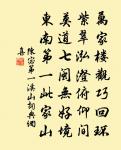 萬家樓觀巧回環
紫翠泓澄俯仰間
莫道七閩無好境
東南第一此家山
陳宓第一溪山詞典網
喜